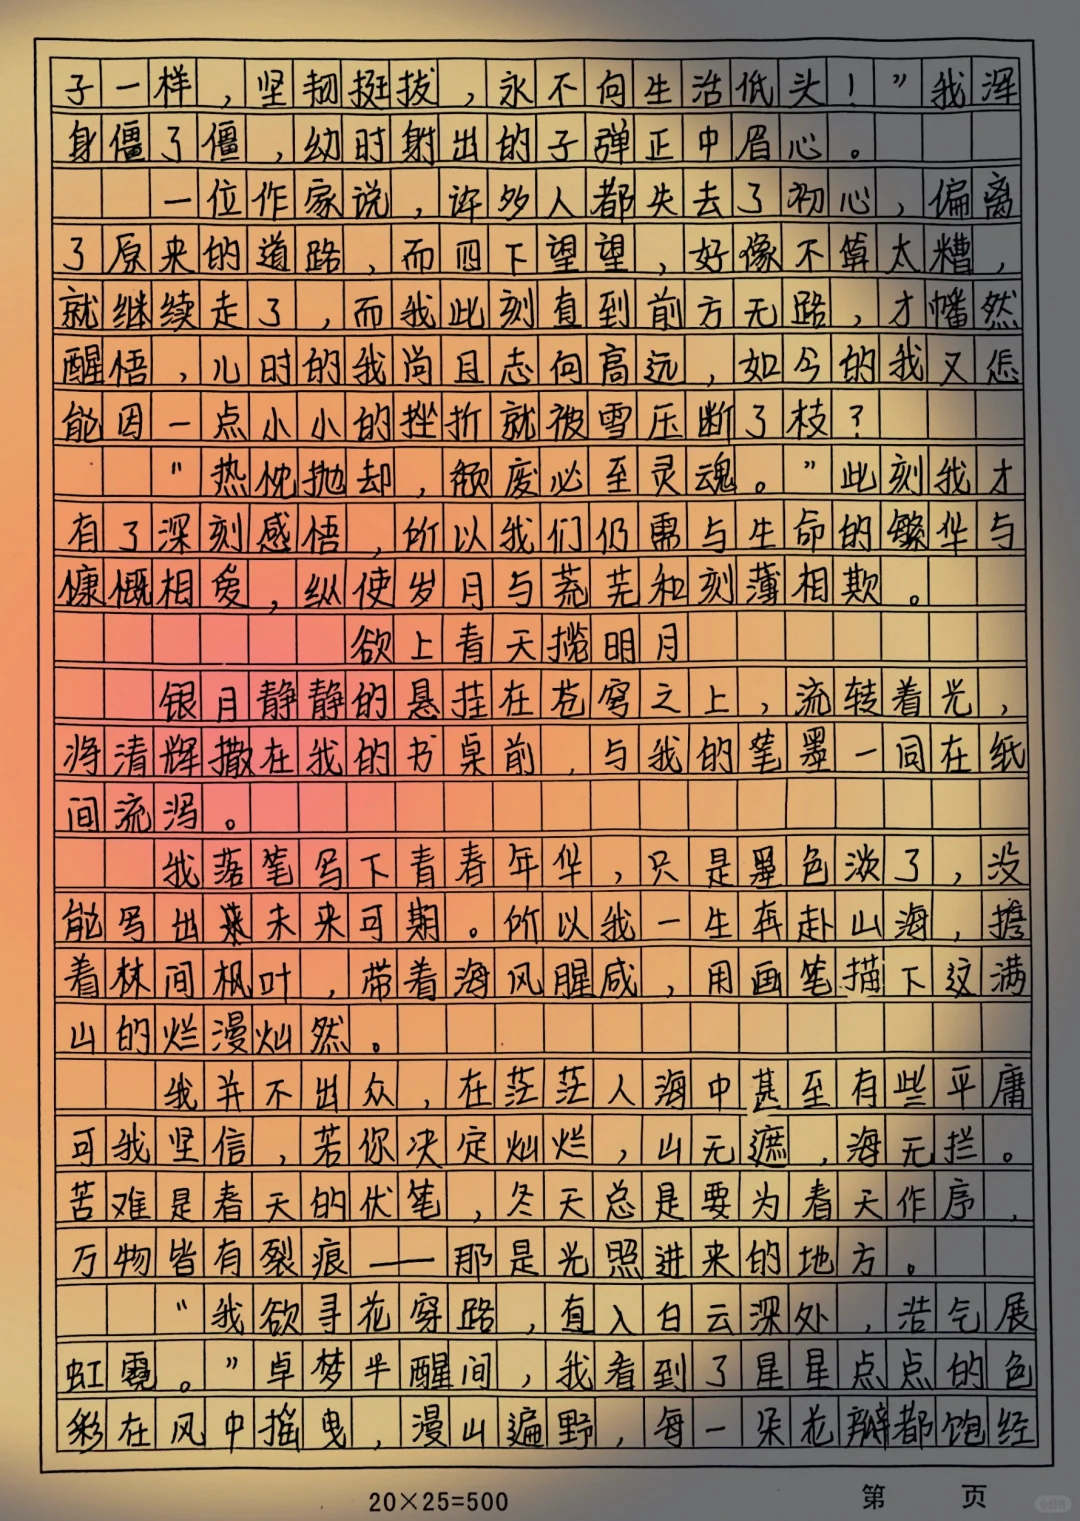 子一样，坚韧挺拔，永不向生活低头！”我浑
身僵了僵，幼时射出的子弹正中眉心。
一位作家说，许多人都失去了初心，偏离
了原来的道路，而四下望望，好像不算太糟，
就继续走了，而我此刻直到前方无路，才幡然
醒悟，儿时的我尚且志向高远，如今的我又怎
能因一点小小的挫折就被雪压断了枝？
“热忱抛却，颓废必至灵魂。”此刻我才
有了深刻感悟，所以我们仍需与生命的繁华与
慷慨相爱，纵使岁月与荒芜和刻薄相欺。
欲上青天揽明月
银月静静的悬挂在苍穹之上，流转着光，
将清辉撒在我的书桌前，与我的笔墨一同在纸
间流泻。
我落笔写下青春年华，只是墨色淡了，没
能写出来未来可期。所以我一生奔赴山海，携
着林间枫叶，带着海风腥咸，用画笔描下这满
山的烂漫灿然。
我并不出众，在茫茫人海中甚至有些平庸
可我坚信，若你决定灿烂，山无遮，海无拦。
苦难是春天的伏笔，冬天总是要为春天作序，
万物皆有裂痕——那是光照进来的地方。
“我欲寻花穿路，直入白云深处，浩气展
虹霓。”卓梦半醒间，我看到了星星点点的色
彩在风中摇曳，漫山遍野，每一朵花瓣都饱经
20×25=500
第 页